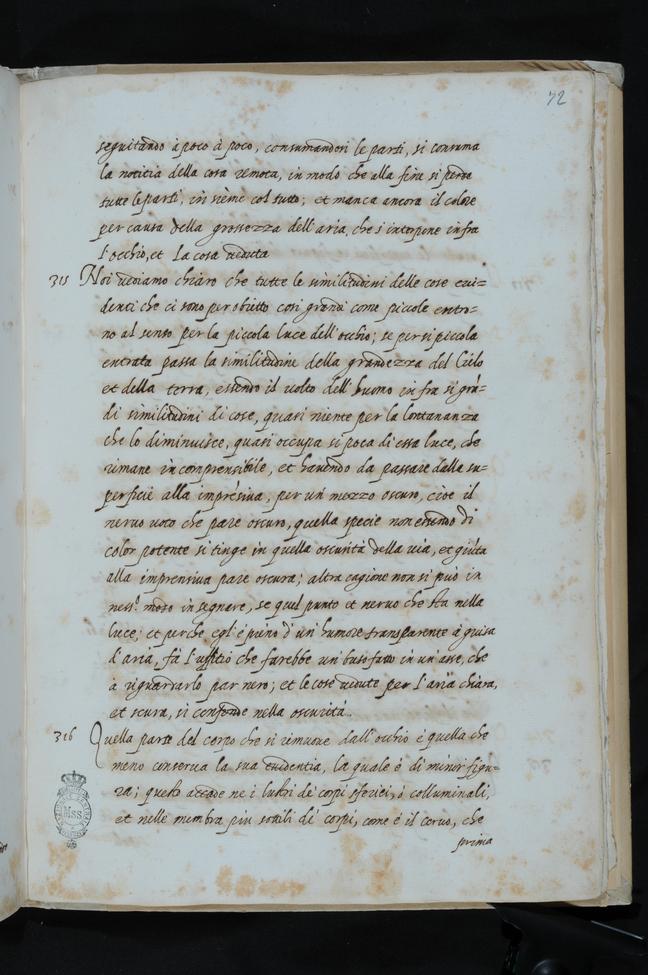 72
seguitando à poco à poco, consumandosi le parti, si consuma
la notitia della cosa remota, in modo che alla fine si perde
tutte le parti, in sieme col tutto; et manca ancora il colore
per causa della grossezza dell'aria, che s'interpone infra
l'occhio, et la cosa ueduta
315 Noi uediamo chiaro che tutte le similitudini delle cose eui-
denti che ci sono per obietto così grandi come piccole entro-
no al senso per la piccola luce dell'occhio; se per si piccola
entrata passa la similitudine della grandezza del Cielo
et della terra, essendo il uolto dell'huomo in fra si grā-
di similitudini di cose, quasi niente per la lontananza
che lo diminuisce, quasi occupa si poca di essa luce, che
rimane incomprensibile, et hauendo da passare dalla su-
perficie alla impresiua, per un mezzo oscuro, cioe il
neruo uoto che pare oscuro, quella specie non essendo di
color potente si tinge in quella oscurità della uia, et giūta
alla imprensiua pare oscura; altra cagione non si può in
ness.o modo insegnare, se quel punto et neruo che sta nella
luce; et perche egl'è pieno d'un'humore transparente à guisa
d'aria, fà l'uffitio che farebbe un buso fatto in un'asse, che
à riguardarlo par nero; et le cose uedute per l'aria chiara,
et scura, si confonde nella oscurità.
316 Quella parte del corpo che si rimuoue dall'occhio è quella che
meno conserua la sua euidentia, la quale è di minor figu-
ra; questo accade ne i lustri de' corpi sferici, ò colluminali,
et nelle membra piu sottili de' corpi, come è il ceruo, che
prima
MSS